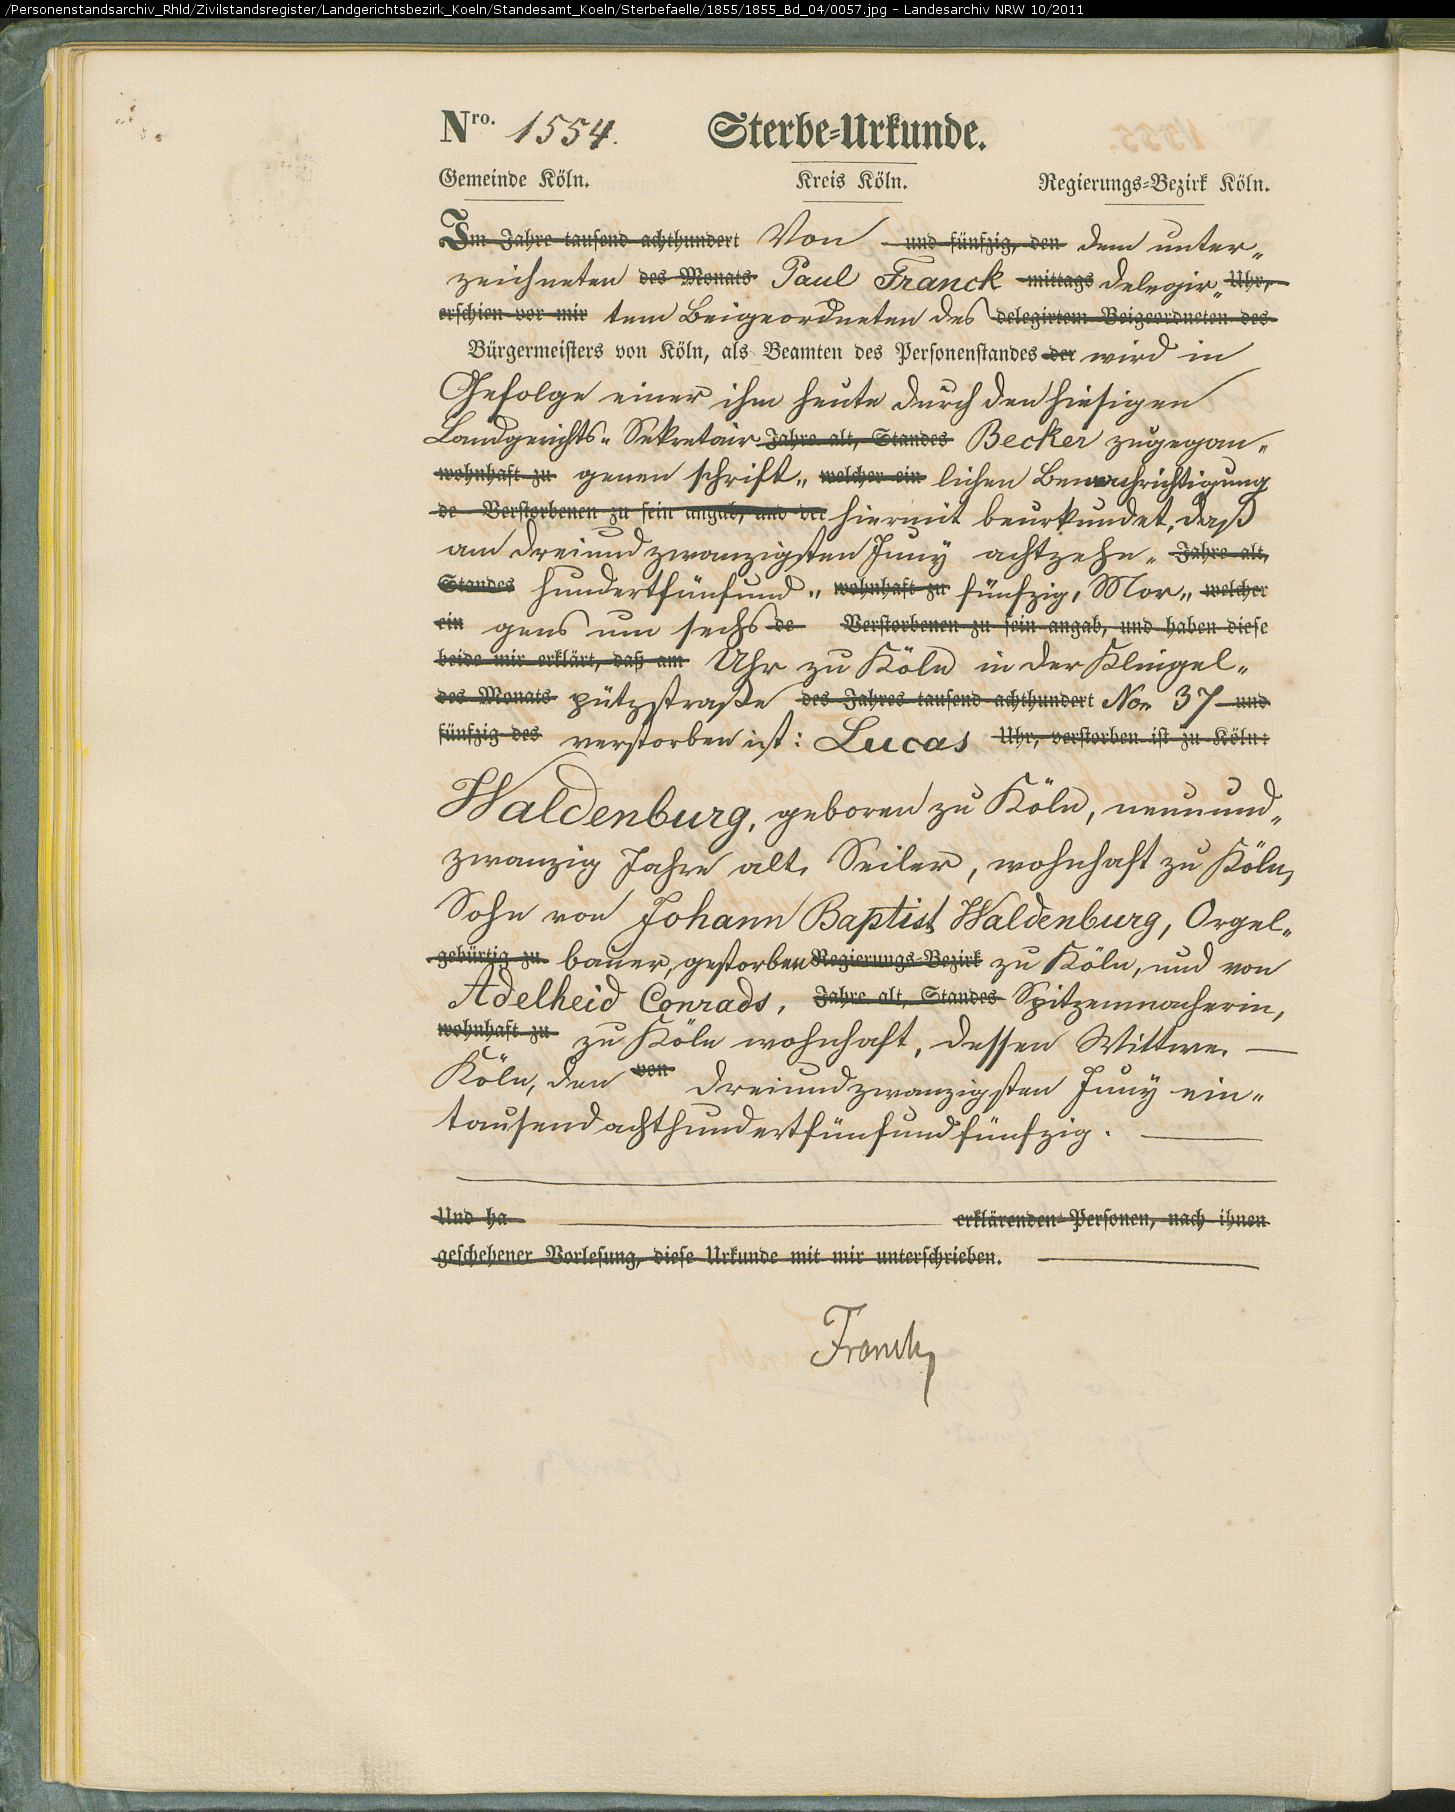 /Personenstandsarchiv_Rhld/Zivilstandsregister/Landgerichtsbezirk_Koeln/Standesamt_Koeln/Sterbefaelle/1855/1855_Bd_04/0057.jpg - Landesarchiv NRW 10/2011
Nro. 1554. Sterbe-Urkunde.
Gemeinde Köln. Kreis Köln. Regierungs-Bezirk Köln.
Im Jahre tausend achthundert Von und fünfzig, den dem unter-
zeichneten des Monats Paul Franck mittags delegir- Uhr,
erschien vor mir tem Beigeordneten des delegirtem Beigeordneten des
Bürgermeisters von Köln, als Beamten des Personenstandes der wird in
Gefolge einer ihm heute durch den hiesigen
Landgerichts- Sekretair Jahre alt, Standes Becker zugegan-
wohnhaft zu genen schrift- welcher ein lichen Benachrichtigung
de Verstorbenen zu sein angab, und der hiermit beurkundet, daß
am dreiundzwanzigsten Juny achtzehn- Jahre alt,
Standes hundertfünfund- wohnhaft zu fünfzig, Mor- welcher
ein gens um sechs de Verstorbenen zu sein angab, und haben diese
beide mir erklärt, daß am Uhr zu Köln in der Klingel-
des Monats pützstraße des Jahres tausend achthundert No 37 und
fünfzig des verstorben ist: Lucas Uhr, verstorben ist zu Köln:
Waldenburg, geboren zu Köln, neunund-
zwanzig Jahre alt, Seiler, wohnhaft zu Köln,
Sohn von Johann Baptist Waldenburg, Orgel-
gebürtig zu bauer, gestorben Regierungs-Bezirk zu Köln, und von
Adelheid Conrads, Jahre alt, Standes Spitzenmacherin,
wohnhaft zu zu Köln wohnhaft, dessen Wittwe.
Köln, den von dreiundzwanzigsten Juny ein-
tausendachthundertfünfundfünfzig.
Und ha erklärenden Personen, nach ihnen
geschehener Vorlesung, diese Urkunde mit mir unterschrieben.
Franck